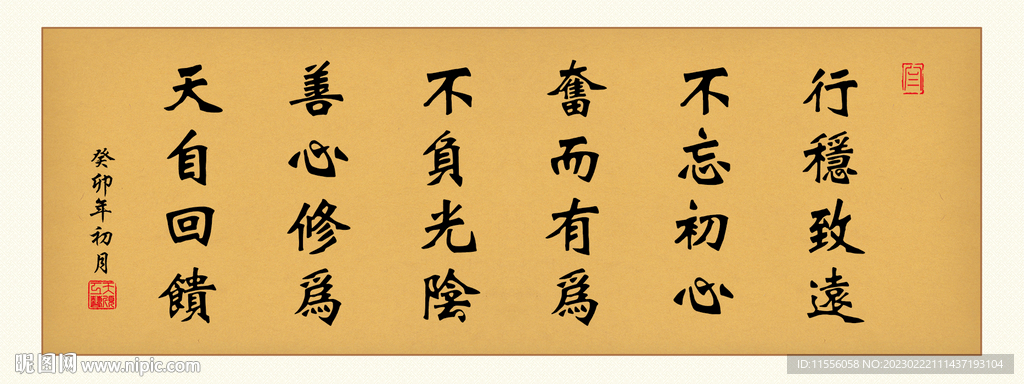 行穩致遠
不忘初心
奮而有為
不負光陰
善心修為
天自回饋
癸卯年初月
昵图网 www.nipic.com
ID:11556058 NO:20230222111437193104